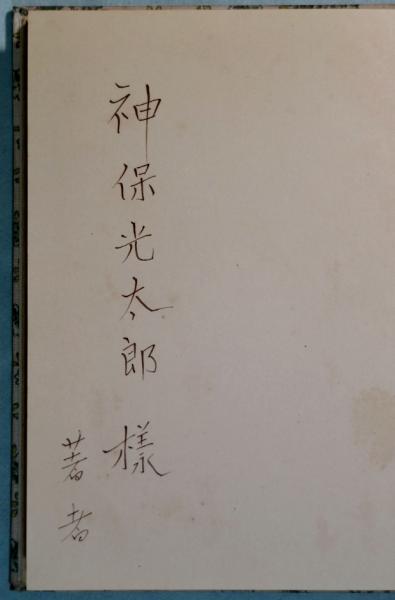 神保光太郎 様
著者